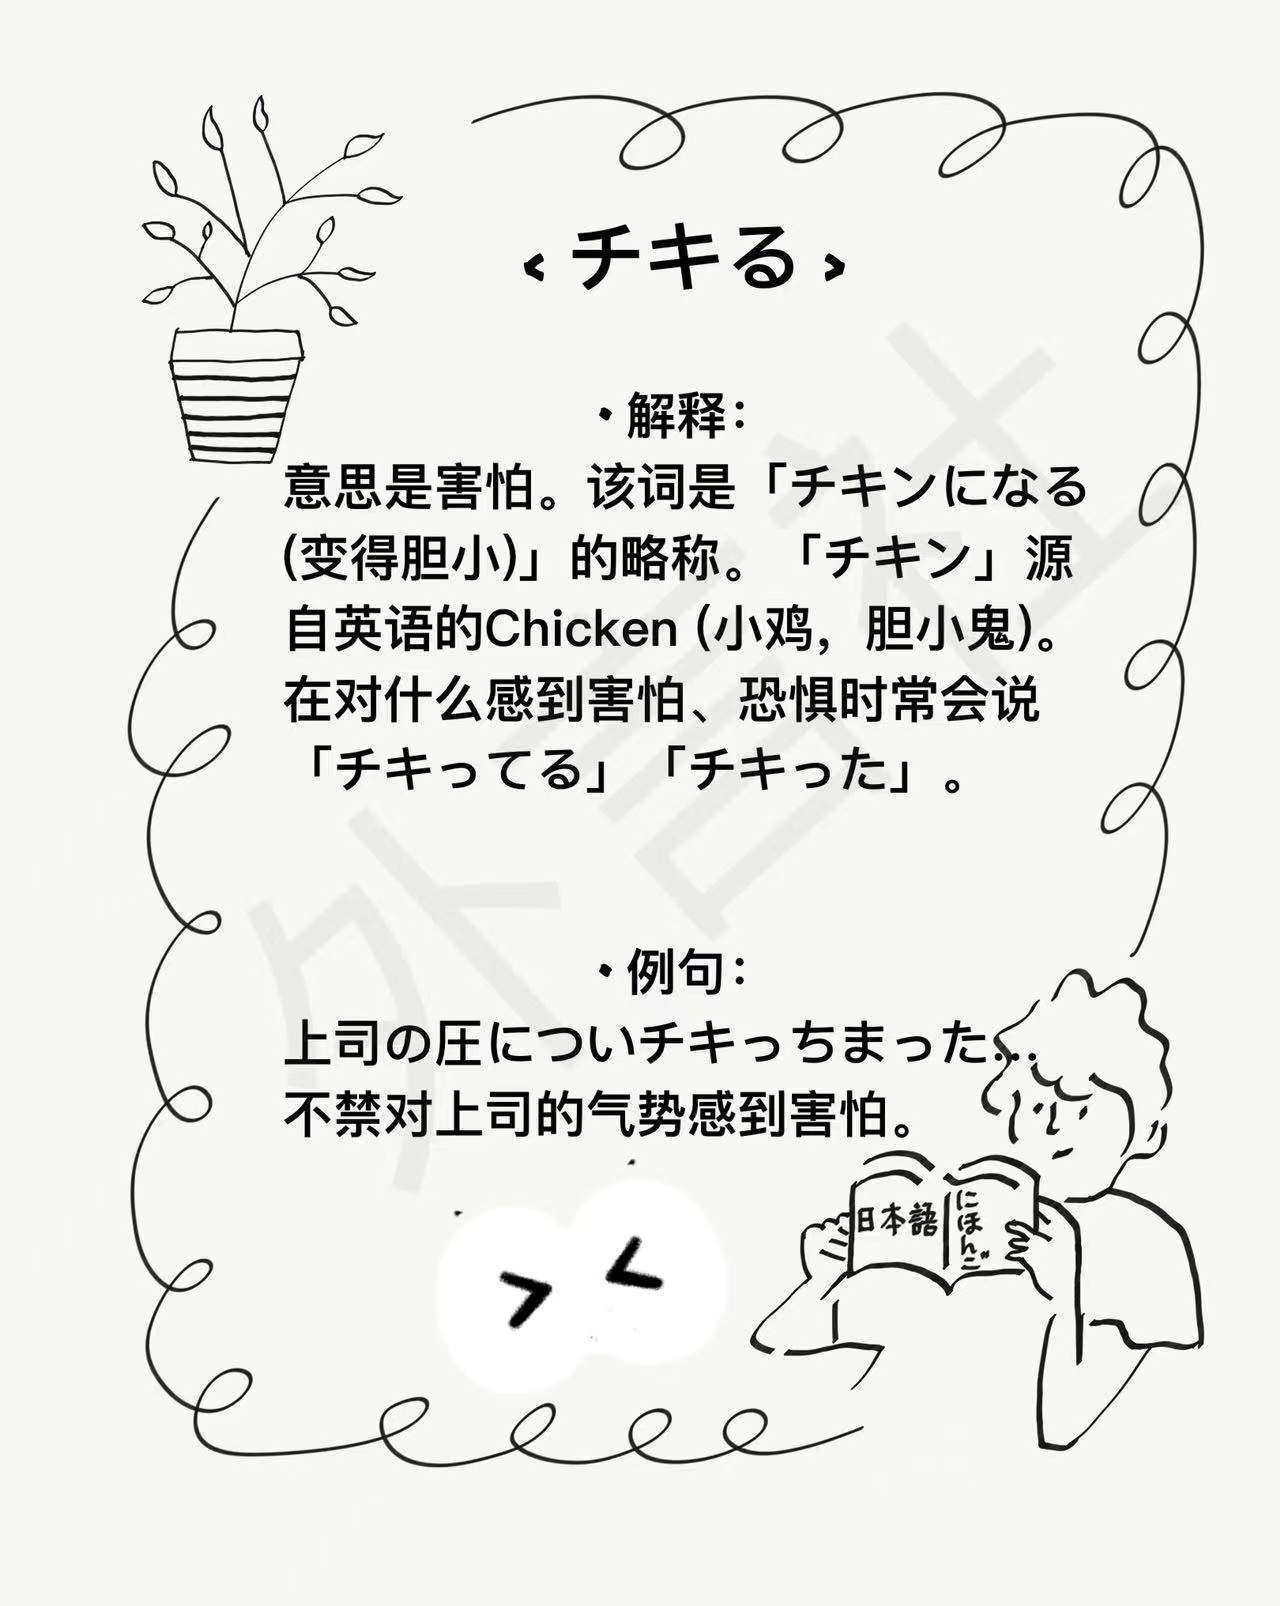 ‹ チキる ›
・解释：
意思是害怕。该词是「チキンになる
(变得胆小)」的略称。「チキン」源
自英语的Chicken (小鸡，胆小鬼)。
在对什么感到害怕、恐惧时常会说
「チキってる」「チキった」。
・例句：
上司の圧についチキっちまった...
不禁对上司的气势感到害怕。
日本語
にほんご
外言社